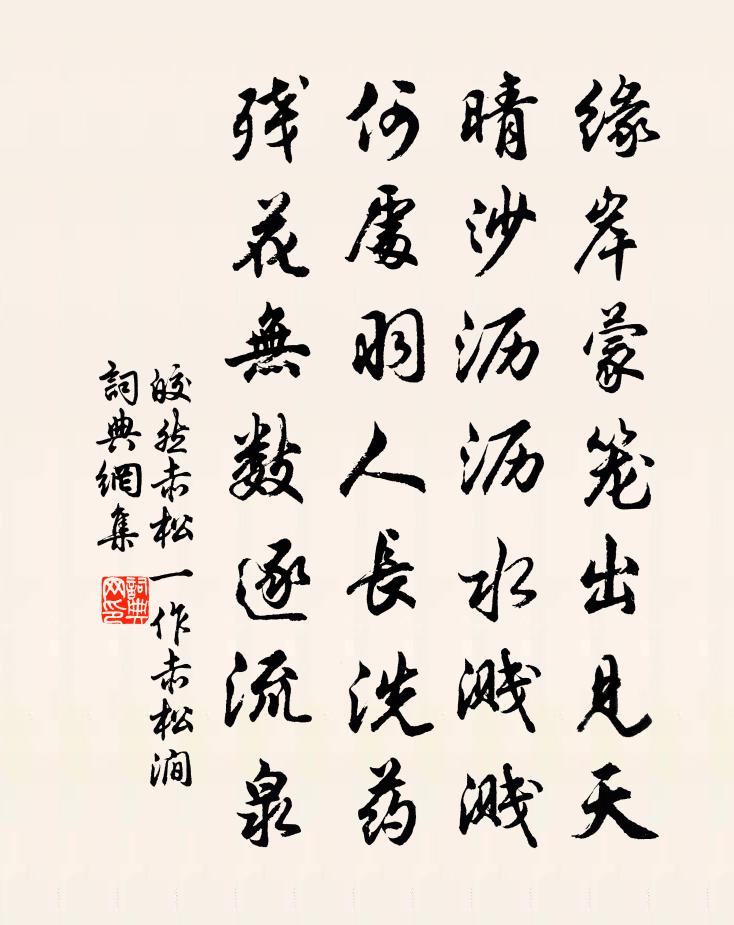 缘岸蒙笼出見天
晴沙沥沥水溅溅
何處羽人長洗药
残花無数逐流泉
皎然赤松一作赤松澗
詞典網集
詞典網印